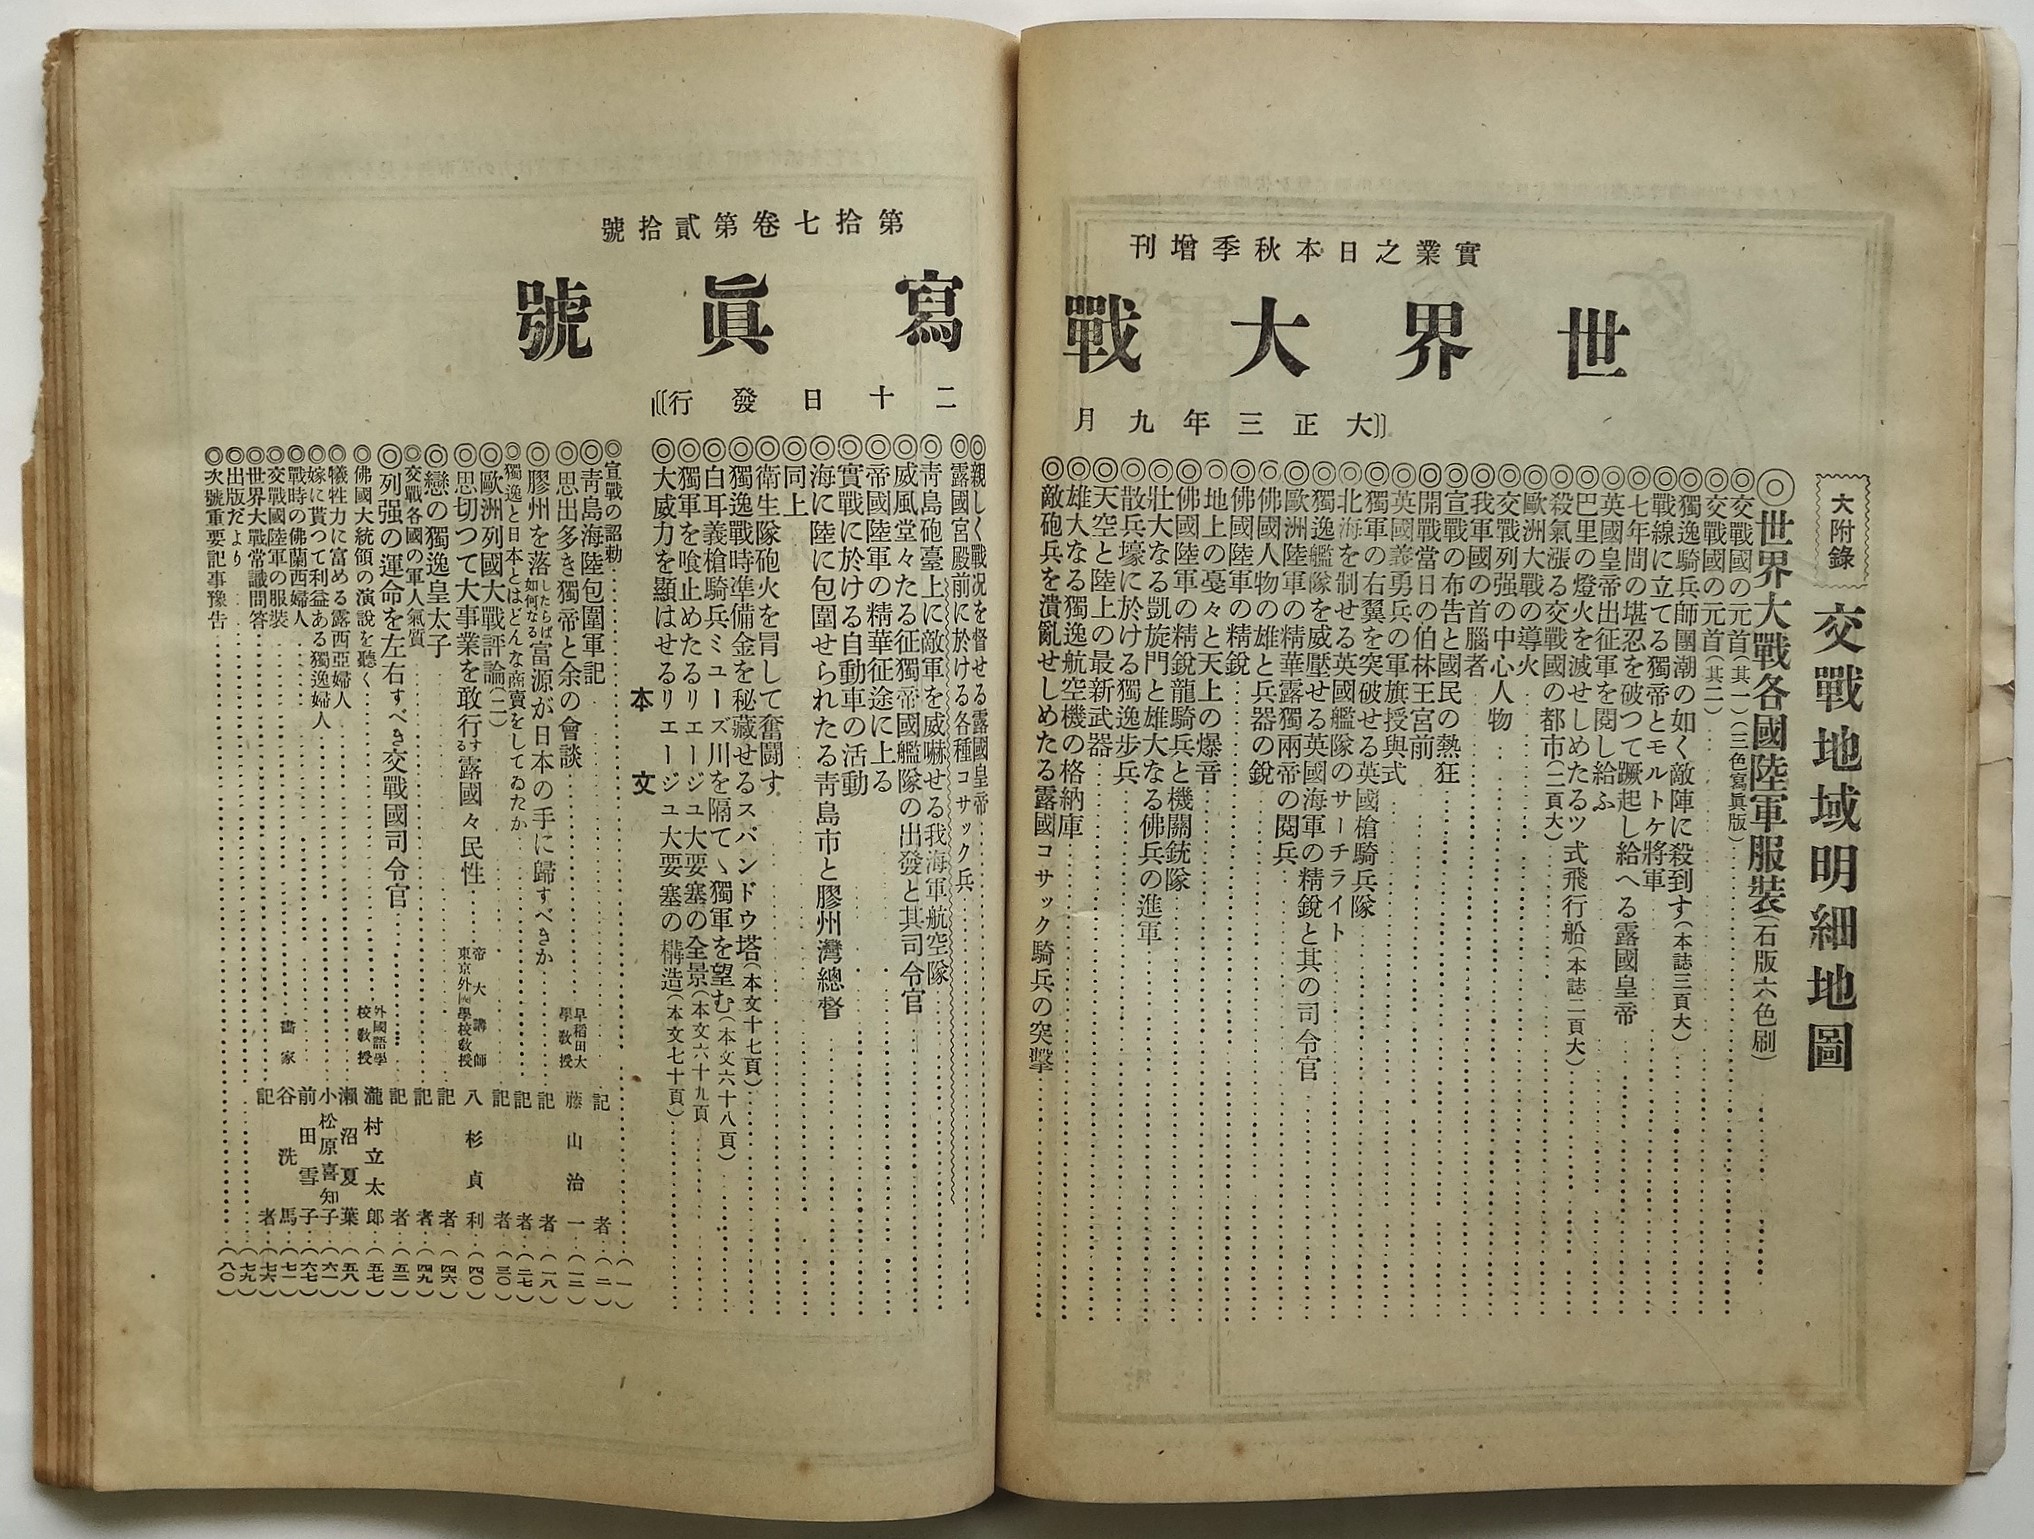 實業之日本秋季增刊
第拾七卷第貳拾號
世界大戰寫眞號
大正三年九月二十日發行
大附錄
交戰地域明細地圖
◎世界大戰各國陸軍服裝(石版六色刷)
◎交戰國の元首(其一)(三色寫眞版)
◎交戰國の元首(其二)
◎獨逸騎兵師團潮の如く敵陣に殺到す(本誌三頁大)
◎戰線に立てる獨帝とモルトケ將軍
◎七年間の堪忍を破つて蹶起し給へる露國皇帝
◎英國皇帝出征軍を閱し給ふ
◎巴里の燈火を滅せしめたるツ式飛行船(本誌二頁大)
◎殺氣漲る交戰國の都市(二頁大)
◎歐洲大戰の導火
◎交戰列强の中心人物
◎我軍國の首腦者
◎宣戰の布告と國民の熱狂
◎開戰當日の伯林王宮前
◎英國義勇兵の軍旗授與式
◎獨軍の右翼を突破せる英國槍騎兵隊
◎北海を制せる英國艦隊のサーチライト
◎獨逸艦隊を威壓せる英國海軍の精銳と其の司令官
◎歐洲陸軍の精華露獨兩帝の閱兵
◎佛國人物の雄と兵器の銳
◎佛國陸軍の精銳
◎地上の戞々と天上の爆音
◎佛國陸軍の精銳龍騎兵と機關銃隊
◎壯大なる凱旋門と雄大なる佛兵の進軍
◎散兵壕に於ける獨逸步兵
◎天空と陸上の最新武器
◎雄大なる獨逸航空機の格納庫
◎敵砲兵を潰亂せしめたる露國コサック騎兵の突擊
◎親しく戰況を督せる露國皇帝
◎露國宮殿前に於ける各種コサック兵
◎靑島砲臺上に敵軍を威嚇せる我海軍航空隊
◎威風堂々たる征獨帝國艦隊の出發と其司令官
◎帝國陸軍の精華征途に上る
◎實戰に於ける自動車の活動
◎海に陸に包圍せられたる靑島市と膠州灣總督
◎同上
◎衛生隊砲火を冐して奮鬪す
◎獨逸戰時準備金を秘藏せるスパンドウ塔(本文十七頁)
◎白耳義槍騎兵ミューズ川を隔て、獨軍を望む(本文六十八頁)
◎獨軍を喰止めたるリエージュ大要塞の全景(本文六十九頁
◎大威力を顯はせるリエージュ大要塞の構造(本文七十頁)
本文
◎宣戰の詔勅(一)
◎靑島海陸包圍軍記 記者(二)
◎思出多き獨帝と余の會談 早稻田大學敎授 藤山治一(一二)
◎膠州を落したらば如何なる富源が日本の手に歸すべきか 記者(一八)
◎獨逸と日本とはどんな商賣をしてゐたか 記者(二七)
◎歐洲列國大戰評論(二) 記者(三〇)
◎思切つて大事業を敢行する露國々民性 帝大講師 東京外國語學校敎授 八杉貞利(四〇)
◎戀の獨逸皇太子 記者(四六)
◎交戰各國の軍人氣質 記者(四九)
◎列强の運命を左右すべき交戰國司令官 記者(五二)
◎佛國大統領の演說を聽く 外國語學校敎授 瀧村立太郎(五七)
◎犧牲力に富める露西亞婦人 瀨沼夏葉(五八)
◎嫁に貰つて利益ある獨逸婦人 小松原喜知子(六一)
◎戰時の佛蘭西婦人 前田雪子(六七)
◎交戰國陸軍の服裝 畵家 谷洗馬(七一)
◎世界大戰常識問答 記者(七六)
◎出版だより(七九)
◎次號重要記事豫告(八〇)